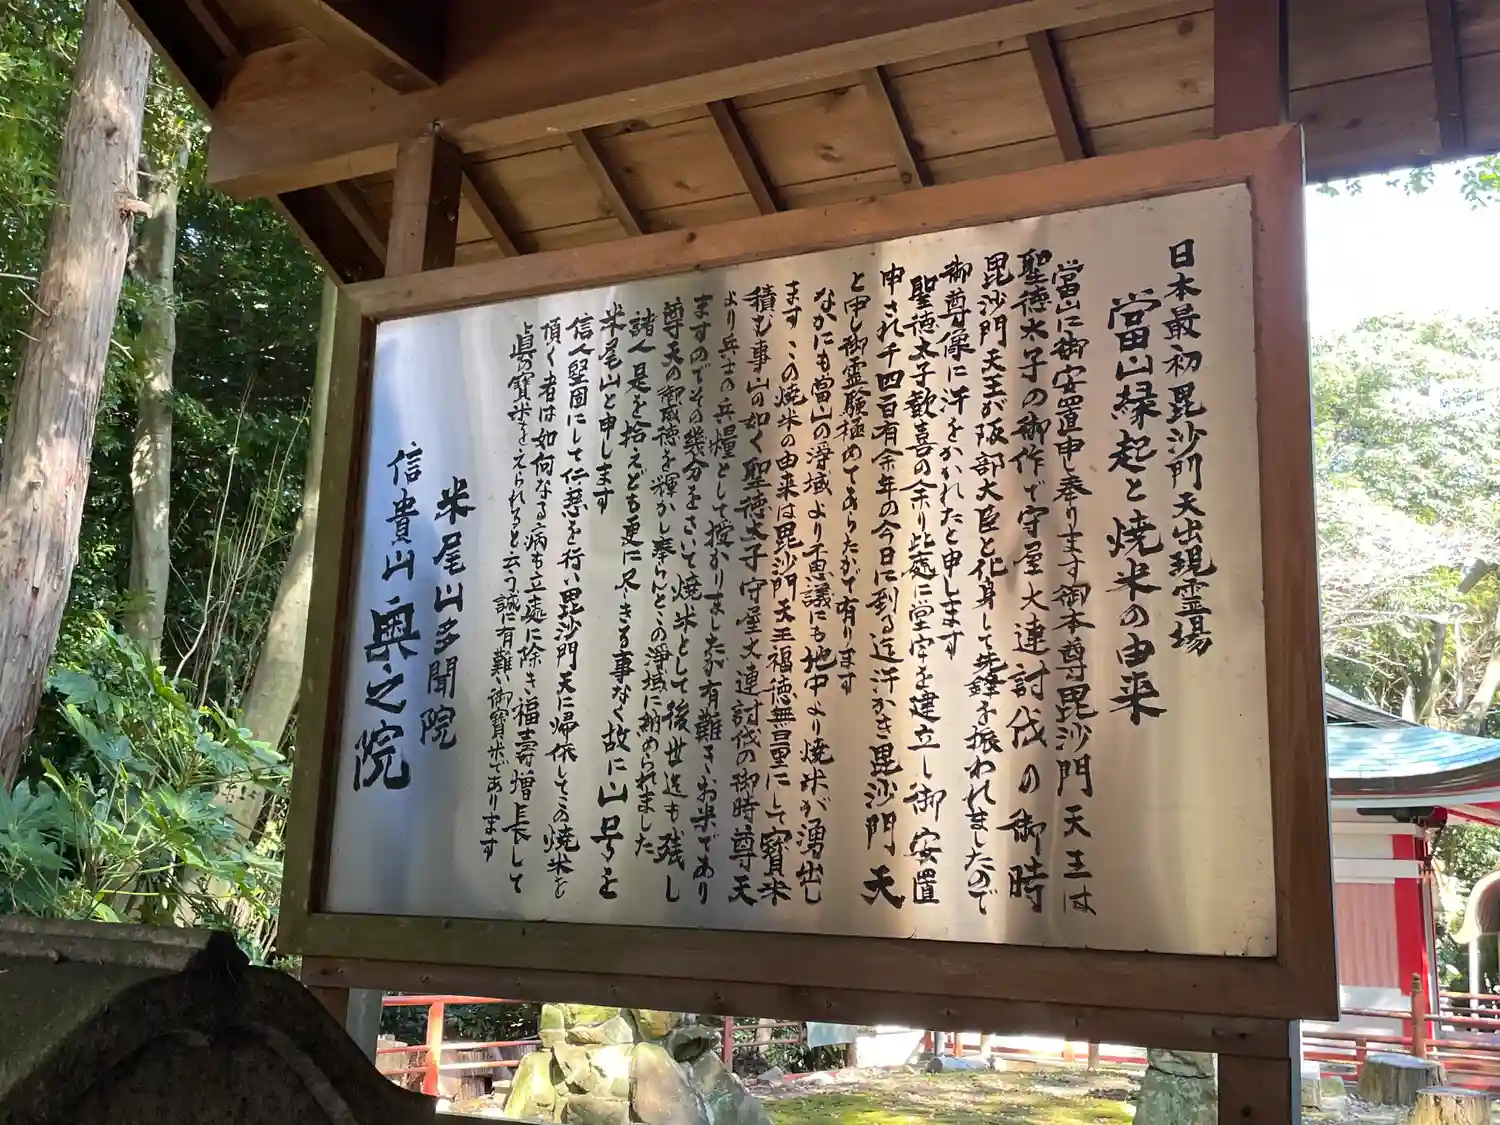 日本最初毘沙門天出現霊場
當山縁起と焼米の由来
當山に御安置申し奉ります御本尊毘沙門天王は
聖徳太子の御作で守屋大連討伐の御時
毘沙門天王が阪部大臣と化身して先鋒を振われましたので
御尊像に汗をかかれたと申します
聖徳太子歓喜の余り此處に堂宇を建立し御安置
申され千四百有余年の今日に到る迄汗かき毘沙門天
と申し御霊験極めてあらたかで有ります
なかにも當山の浄域より不思議にも地中より焼米が湧出し
ます この焼米の由来は毘沙門天王福徳無量にして寶米
積む事山の如く聖徳太子守屋大連討伐の御時尊天
より兵士の兵糧として授かりましたが有難きお米であり
ますのでその幾分をさいて焼米として後世迄も残し
尊天の御威徳を輝かし奉らんとこの浄域に納められました
諸人是を拾えども更に尽きる事なく故に山号を
米尾山と申します
信人堅固にして仁慈を行い毘沙門天に帰依してこの焼米を
頂く者は如何なる病も立處に除き福壽増長して
眞の寶米をえられると云う誠に有難い御寶米であります
米尾山多聞院
信貴山奥之院